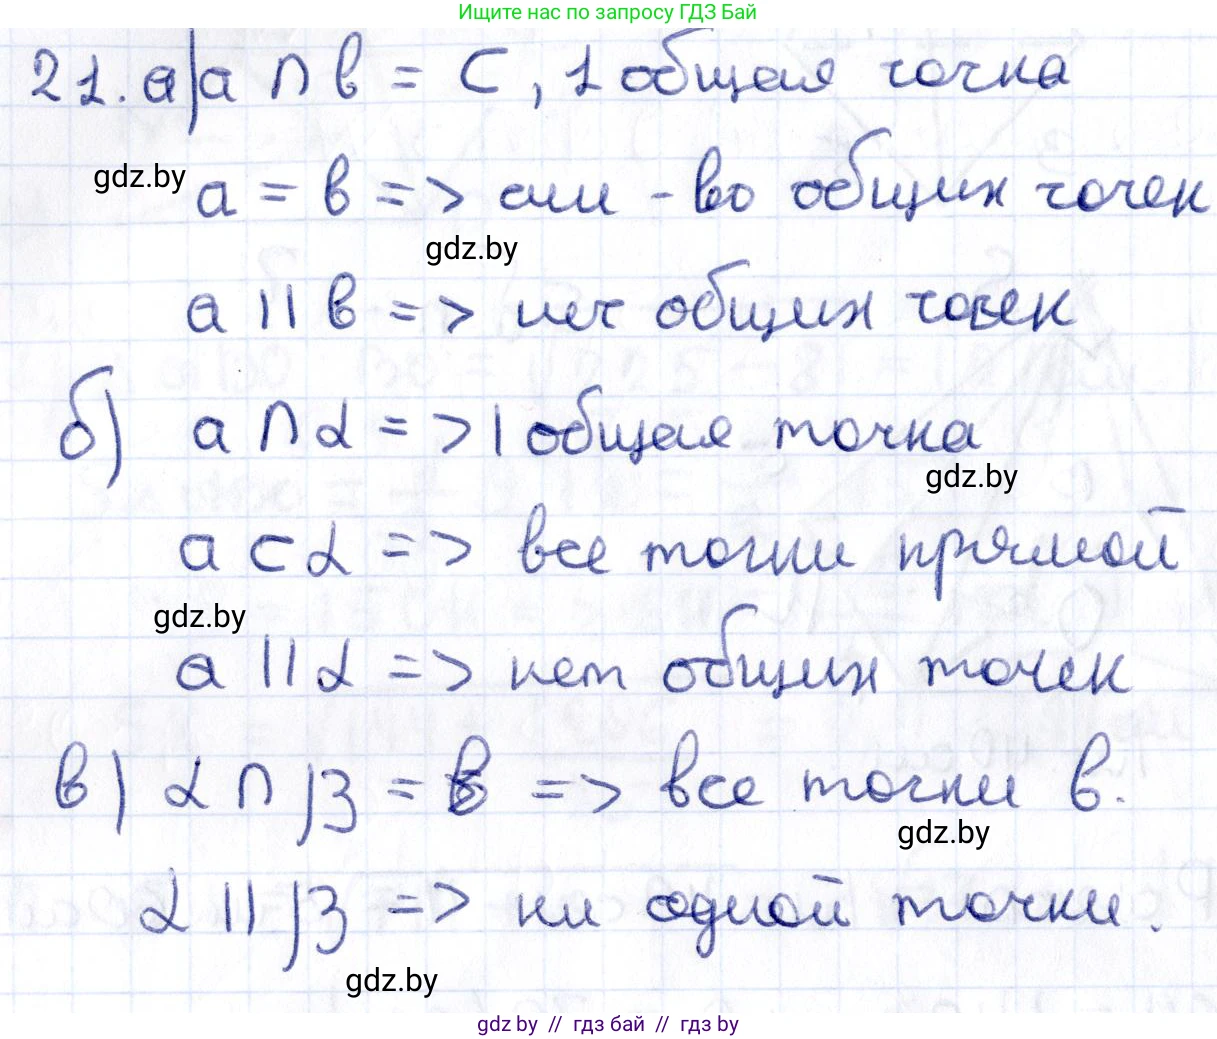 Ищите нас по запросу ГДЗ Бай
21. а) a ∩ b = C, 1 общая точка
gdz.by
a = b => мн-во общих точек
gdz.by
a || b => нет общих точек
б) a ∩ α => 1 общая точка
gdz.by
a ⊂ α => все точки прямой
gdz.by
a || α => нет общих точек
в) α ∩ β = b => все точки b.
gdz.by
α || β => ни одной точки.
gdz.by
gdz by // гдз бай // гдз by